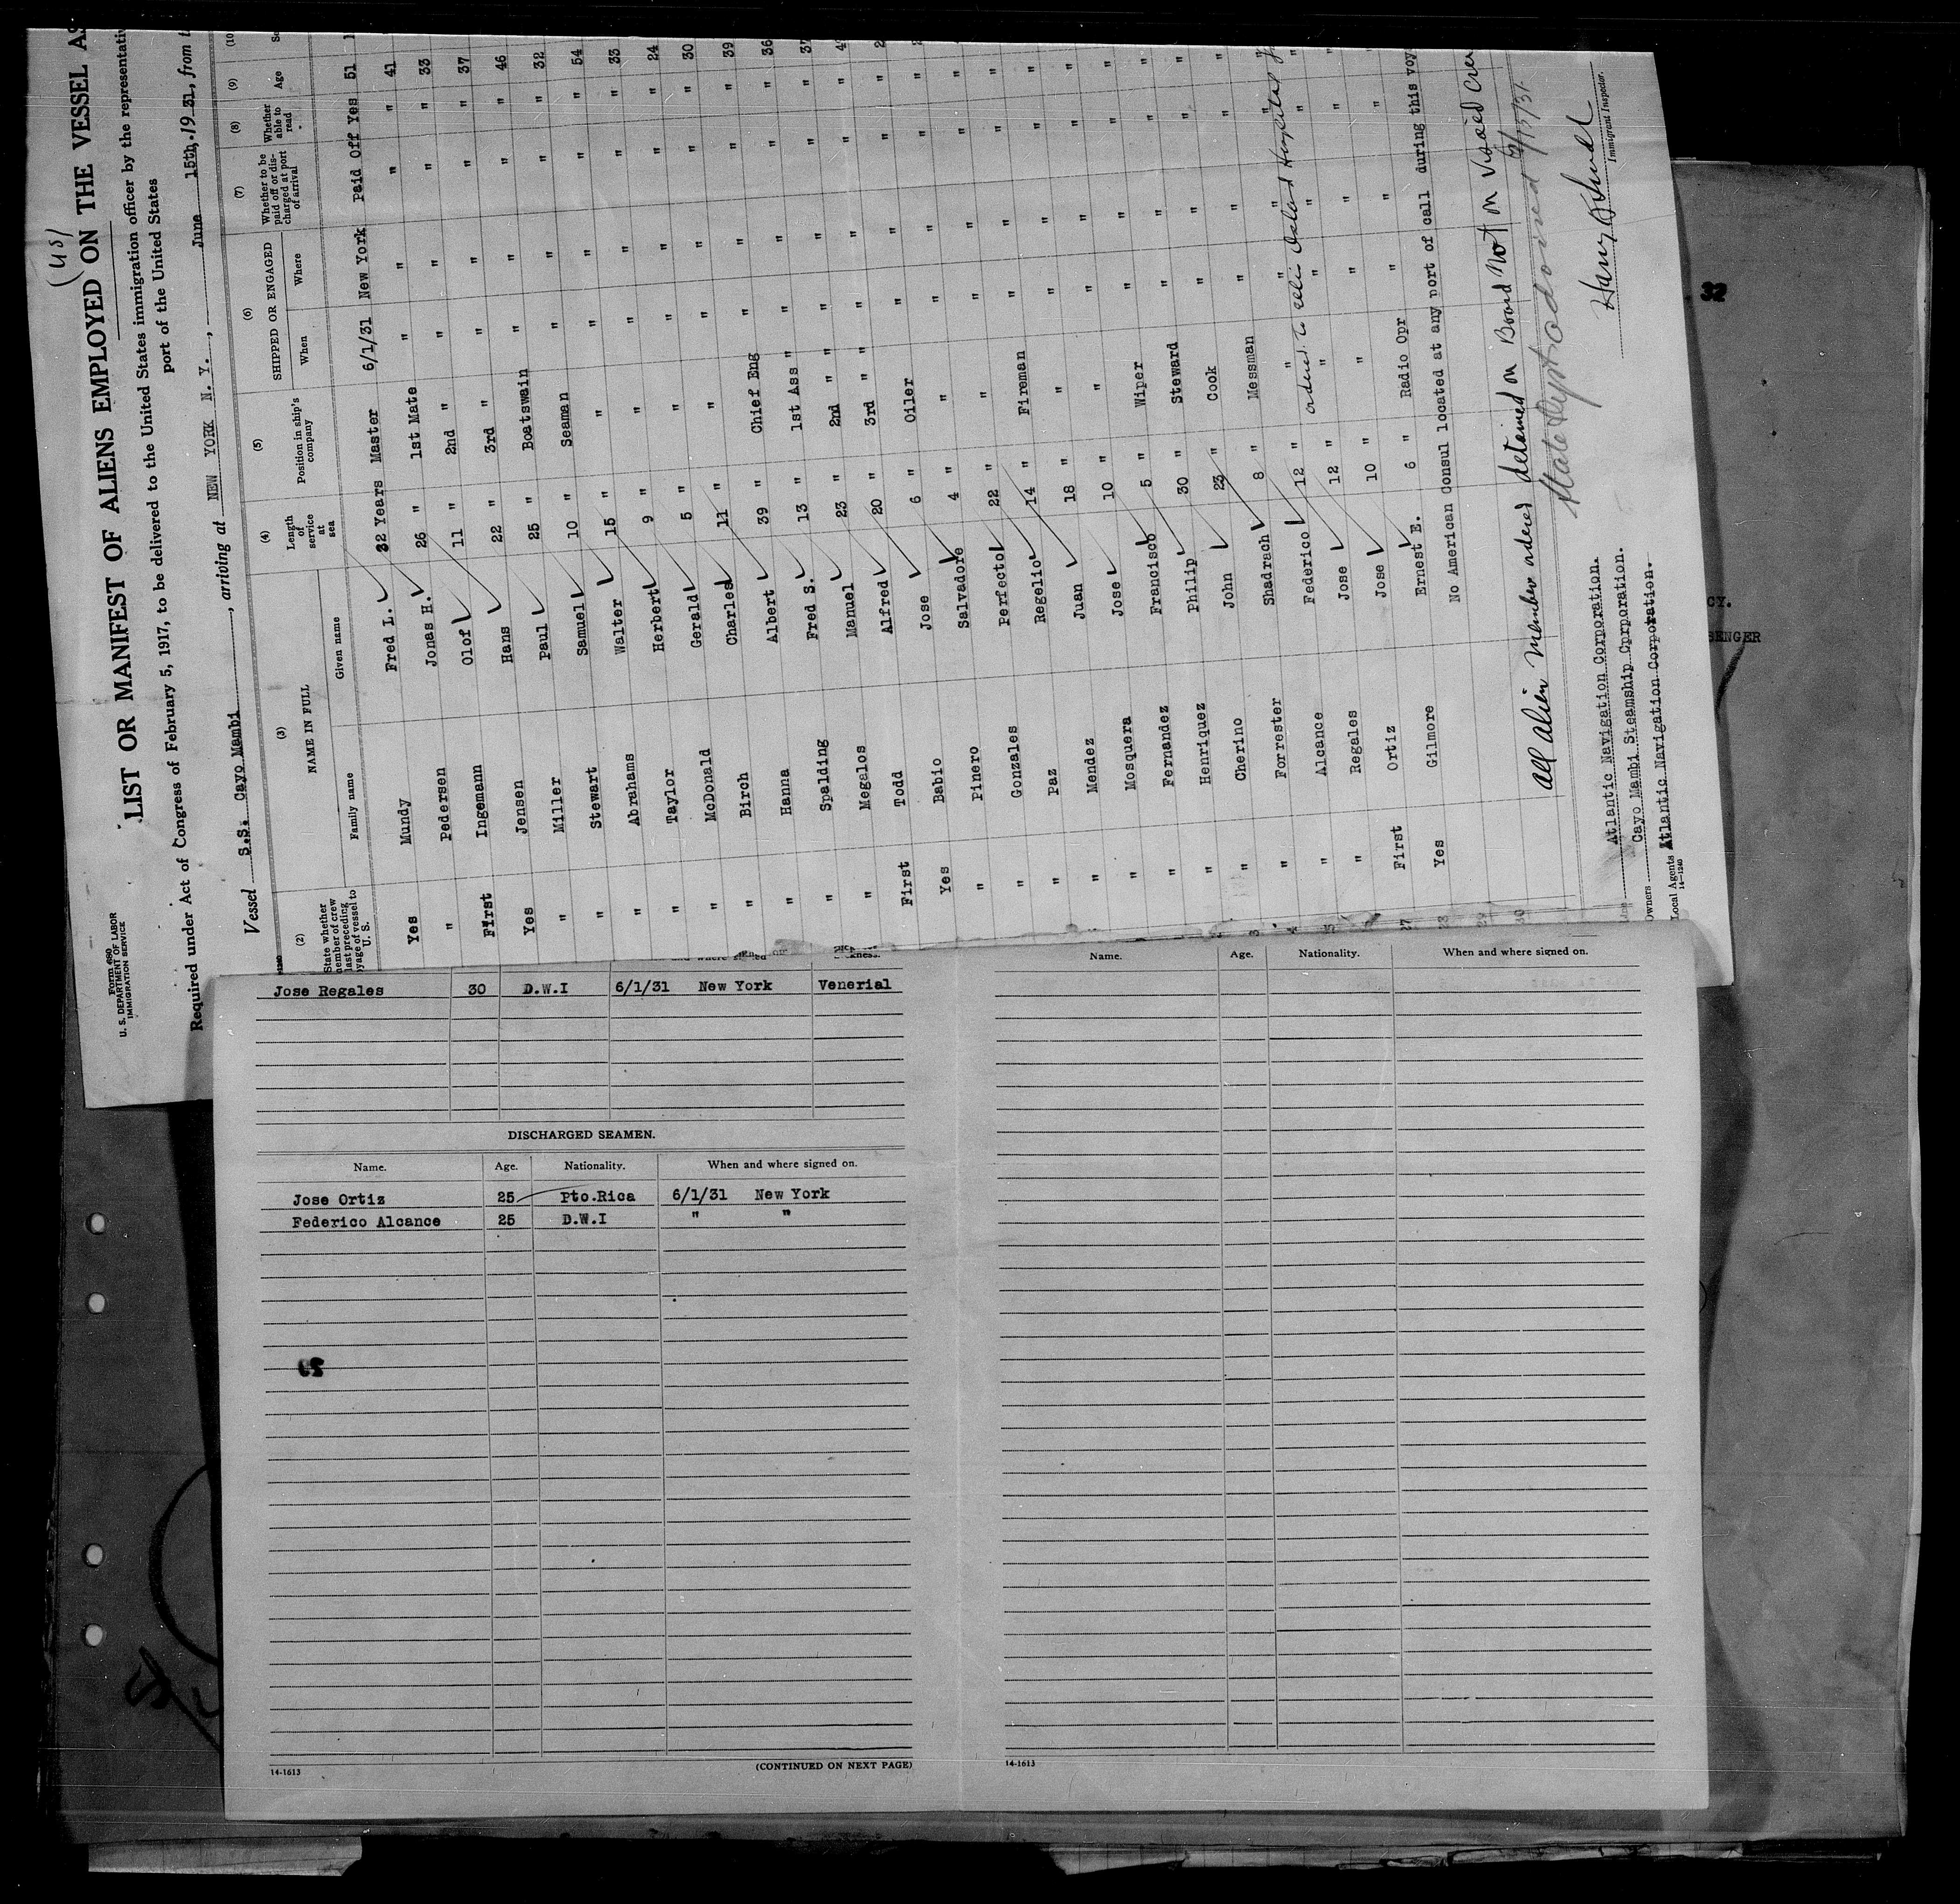 (US)
Form 680
U. S. DEPARTMENT OF LABOR
IMMIGRATION SERVICE
LIST OR MANIFEST OF ALIENS EMPLOYED ON THE VESSEL AS
Required under Act of Congress of February 5, 1917, to be delivered to the United States immigration officer by the representativ
port of the United States
Vessel S.S. Cayo Mambi, arriving at NEW YORK N. Y., June 15th, 1931, from t
(2) (3) (4) (5) (6) (7) (8) (9) (10
State whether member of crew last preceding voyage of vessel to U. S. NAME IN FULL Family name Given name Length of service at sea Position in ship's company SHIPPED OR ENGAGED When Where Whether to be paid off or discharged at port of arrival Whether able to read Age Se
Yes Mundy Fred L. 32 Years Master 6/1/31 New York Paid Off Yes 51
" Pedersen Jonas H. 26 " 1st Mate " " " " 41
First Ingemann Olof 11 " 2nd " " " " " 33
Yes Jensen Hans 22 " 3rd " " " " " 37
" Miller Paul 25 " Boatswain " " " " 46
" Stewart Samuel 10 " Seaman " " " " 32
" Abrahams Walter 15 " " " " " " 54
" Taylor Herbert 9 " " " " " " 33
" McDonald Gerald 5 " " " " " " 24
" Birch Charles 11 " " " " " " 30
" Hanna Albert 39 " Chief Eng " " " " 39
" Spalding Fred S. 13 " 1st Ass " " " " " 36
" Megalos Manuel 23 " 2nd " " " " " " 37
First Todd Alfred 20 " 3rd " " " " " "
Yes Babio Jose 6 " Oiler " " " "
" Pinero Salvadore 4 " " " " " "
" Gonzales Perfecto 22 " " " " " "
" Paz Regelio 14 " Fireman " " " "
" Mendez Juan 18 " " " " " "
" Mosquera Jose 10 " " " " " "
" Fernandez Francisco 5 " Wiper " " " "
" Henriquez Philip 30 " Steward " " " "
" Cherino John 23 " Cook " " " "
" Forrester Shadrach 8 " Messman " " " "
" Alcance Federico 12 " " " " " "
ordered to Ellis Island Hospital
" Regales Jose 12 " " " " " "
27 First Ortiz Jose 10 " " " " " "
28 Yes Gilmore Ernest E. 6 " Radio Opr " " "
29 No American Consul located at any port of call during this voy
30
All Alien Member ordered detained on Board Not on visaed Crew
State Dept
Harry
Immigrant Inspector.
Atlantic Navigation Corporation.
Owners Cayo Mambi Steamship Cprporation.
Local Agents Atlantic Navigation Corporation.
14-1240
32
CY.
SENGER
Jose Regales 30 D.W.I 6/1/31 New York Venerial
DISCHARGED SEAMEN.
Name. Age. Nationality. When and where signed on.
Jose Ortiz 25 Pto.Rica 6/1/31 New York
Federico Alcance 25 D.W.I " "
14-1613
(CONTINUED ON NEXT PAGE)
Name. Age. Nationality. When and where signed on.
14-1613